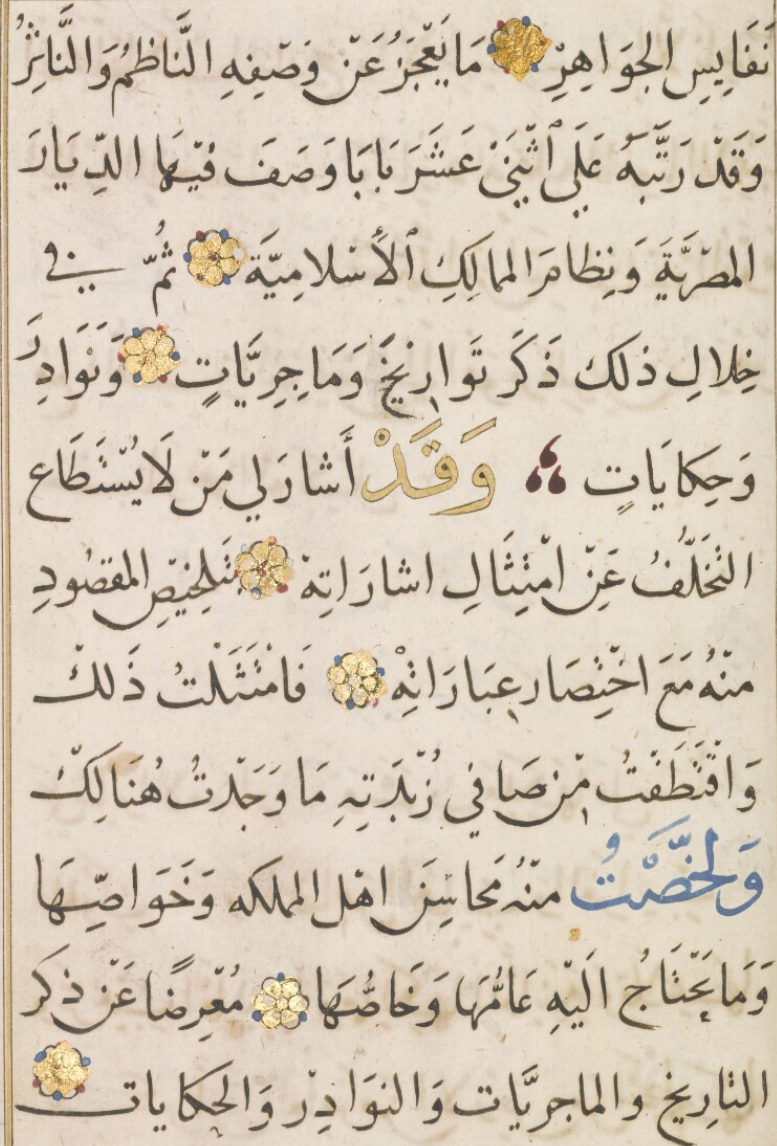 نَفَايِسِ الجَوَاهِرِ مَا يَعْجَزُ عَنْ وَصْفِهِ النَّاظمُ وَالنَّاثِرُ
وَقَدْ رَتَّبَهُ عَلَى اثْنَىْ عَشَرَ بَابًا وَصَفَ فيْهَا الدِّيَارَ
المصْرِيَّةَ وَنِظامَ الممالِكِ الأسْلامِيَّة ثُمّ في
خِلالِ ذلك ذَكَر تَوارِيْخَ وَمَاجِرِيَّاتٍ وَنَوَادِرَ
وَحِكايَاتٍ وَقَدْ أَشارَ لي مَنْ لَا يُسْتَطَاع
التخَلّفُ عَنِ امْتِثَالِ اشارَاتِهْ بتَلخِيْصِ المقصُودِ
منْهُ مَعَ اخْتِصَارِ عِبَارَاتِهْ فَامْتَثَلْتُ ذَلكْ
وَاقْتَطَفْتُ مِنْ صَافي زُبْدَتِهِ مَا وَجَدْتُ هُنَالِكْ
وَلَخَّصْتُ منْهُ مَحَاسِنَ اهْل المملكه وَخَوَاصِّهَا
وَمَا يَحْتَاجُ الَيْهِ عَامُّهَا وَخَاصُّهَا مُعْرِضًا عَنْ ذِكر
التارِيخ والماجريَّات وَالنوَادِرْ وَالحكايات